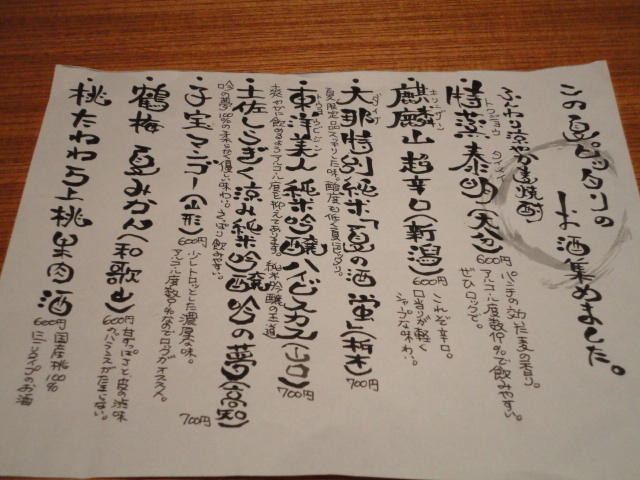 この夏ぴったりの
お酒集めました。
ふんわり涼やか麦焼酎
トクジョウ タイメイ
特蒸泰明(大分)600円
パンチの効いた麦の香り。
アルコール度数19%で飲みやすい。
ぜひロックで。
キリンザン
麒麟山 超辛口(新潟)600円
これぞ辛口。
口当りが軽く
シャープな味わい。
ダイナ
大那特別純米「夏の酒 蛍」(栃木)700円
夏限定品
トウヨウビジン
東洋美人 純米吟醸ハイビスカス(山口)700円
爽やかに飲めるようアルコール度を抑えてあります。純米吟醸の王道
土佐しらぎく涼み純米吟醸吟の夢(高知)700円
吟の夢100%の米と 優しい味わい。さっぱり飲みやすい。
子宝マンゴー(山形)600円
少しトロッとした濃厚な味。
アルコール度数 ロックがオススメ。
鶴梅 夏みかん(和歌山)600円
甘ずっぱさと皮の渋味
バランスがたまらない。
桃たわわ万上桃果肉酒600円
国産桃100%
にごりタイプのお酒